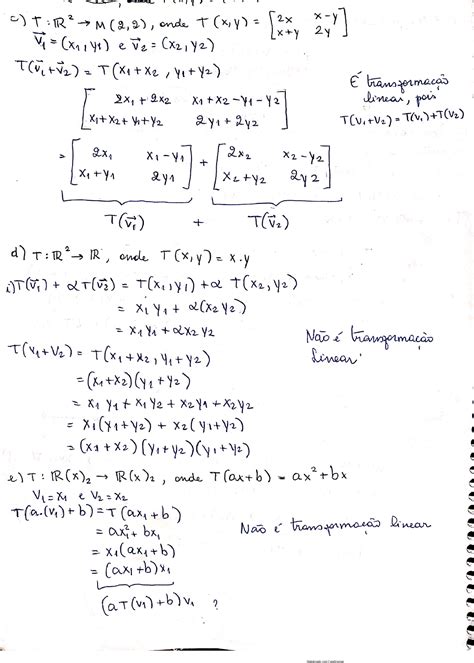 c) T: ℝ² → M(2,2), onde T(x,y) = [2x x-y
x+y 2y]
v⃗₁ = (x₁, y₁) e v⃗₂ = (x₂, y₂)
T(v⃗₁+v⃗₂) = T(x₁+x₂, y₁+y₂)
[2x₁+2x₂ x₁+x₂-y₁-y₂
x₁+x₂+y₁+y₂ 2y₁+2y₂]
É transformação
linear, pois
T(v₁+v₂) = T(v₁)+T(v₂)
= [2x₁ x₁-y₁
x₁+y₁ 2y₁] + [2x₂ x₂-y₂
x₂+y₂ 2y₂]
T(v⃗₁) + T(v⃗₂)
d) T: ℝ² → ℝ, onde T(x,y) = x.y
i) T(v⃗₁) + αT(v⃗₂) = T(x₁,y₁) + α T(x₂,y₂)
= x₁y₁ + α(x₂y₂)
= x₁y₁ + αx₂y₂
Não é transformação
linear
T(v₁+v₂) = T(x₁+x₂, y₁+y₂)
= (x₁+x₂)(y₁+y₂)
= x₁y₁ + x₁y₂ + x₂y₁ + x₂y₂
= x₁(y₁+y₂) + x₂(y₁+y₂)
= (x₁+x₂)(y₁+y₂)(y₁+y₂)
e) T: ℝ(x)₂ → ℝ(x)₂, onde T(ax+b) = ax²+bx
v₁=x₁ e v₂=x₂
T(a.(v₁)+b) = T(ax₁+b)
= ax₁²+bx₁
= x₁(ax₁+b)
= (ax₁+b)x₁
(aT(v₁)+b)v₁ ?
Não é transformação linear